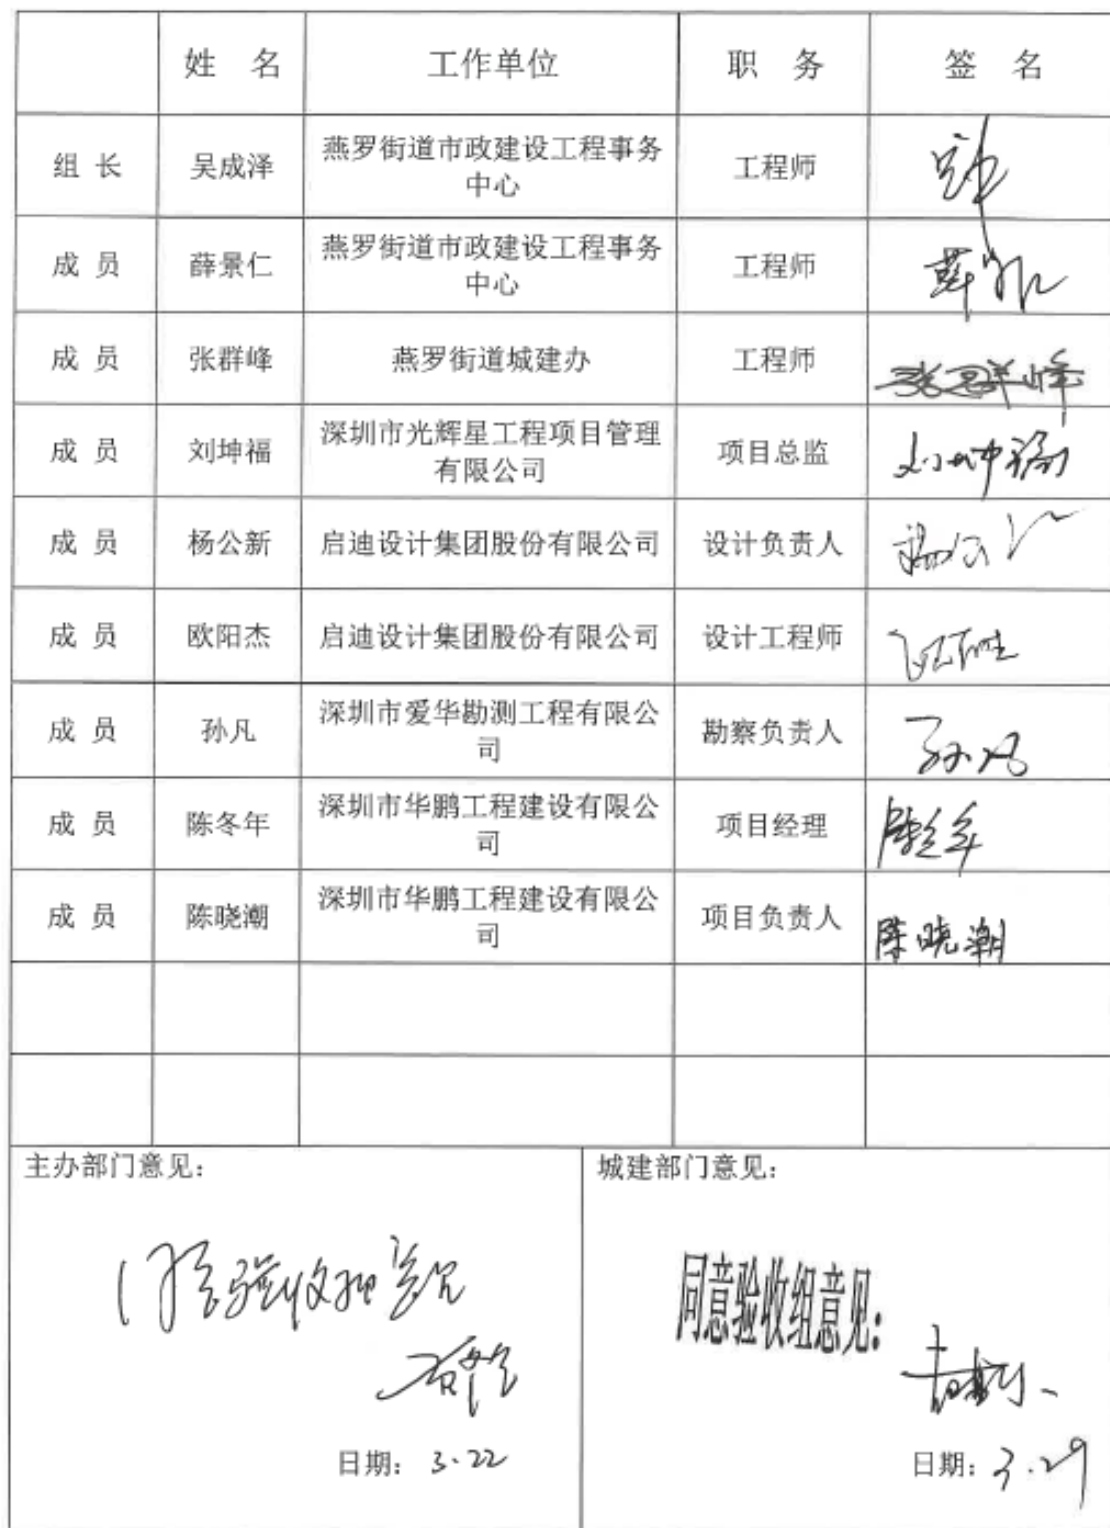 姓 名 工作单位 职 务 签 名
组 长 吴成泽 燕罗街道市政建设工程事务 工程师
中心
成 员 薛景仁 燕罗街道市政建设工程事务 工程师 薛
中心
成 员 张群峰 燕罗街道城建办 工程师 张群峰
成 员 刘坤福 深圳市光辉星工程项目管理 项目总监 刘坤福
有限公司
成 员 杨公新 启迪设计集团股份有限公司 设计负责人 杨公
成 员 欧阳杰 启迪设计集团股份有限公司 设计工程师
成 员 孙凡 深圳市爱华勘测工程有限公 勘察负责人 孙凡
司
成 员 陈冬年 深圳市华鹏工程建设有限公 项目经理 陈冬年
司
成 员 陈晓潮 深圳市华鹏工程建设有限公 项目负责人 陈晓潮
司
主办部门意见： 城建部门意见：
同意验收组意见
同意验收组意见：
日期： 3.22 日期： 3.29